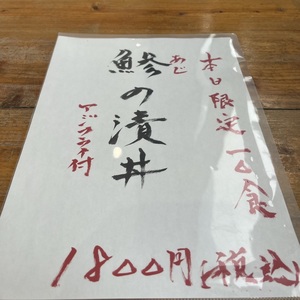 本日限定一〇食
あじ
鯵の漬丼
アジフライ付
1800円(税込)